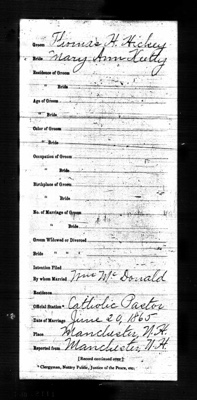 Groom Thomas H. Hickey
Bride Mary Ann
Residence of Groom
" Bride
Age of Groom
" Bride
Color of Groom
" Bride
Occupation of Groom
" Bride
Birthplace of Groom
" Bride
No. of Marriage of Groom
" " Bride
Groom Widowed or Divorced
Bride " "
Intention Filed
By whom Married Wm McDonald
Residence
Official Station* Catholic Pastor
Date of Marriage June 20, 1865
Place Manchester, N.H.
Reported from Manchester, N.H.
[Record continued over]
* Clergyman, Notary Public, Justice of the Peace, etc.